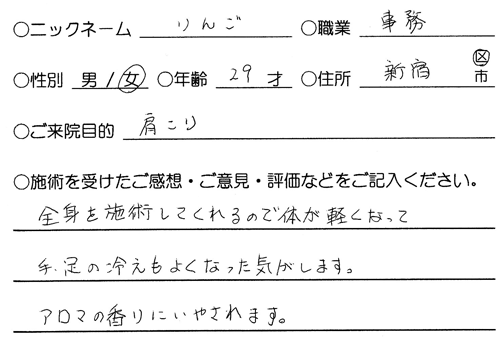 ○ニックネーム りんご ○職業 事務
○性別 男/女 ○年齢 29 才 ○住所 新宿 区市
○ご来院目的 肩こり
○施術を受けたご感想・ご意見・評価などをご記入ください。
全身を施術してくれるので体が軽くなって
手、足の冷えもよくなった気がします。
アロマの香りにいやされます。